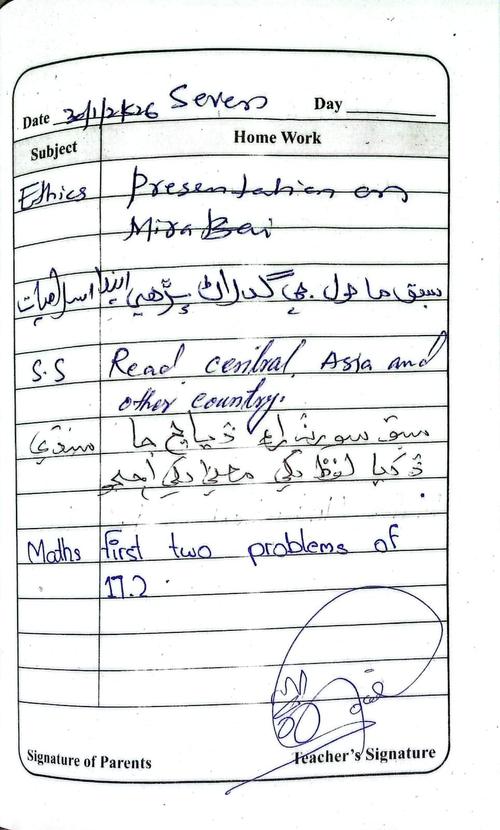 Date 30/1/2026 Seven Day
Subject Home Work
Ethics Presentation on
Mira Bai
اسلاميات سبق ماحول جي گدلاڻ پڙهي ايندا
S.S Read central Asia and
other country.
سنڌي سبق سورٺ راءِ ڏياچ جا
ڏکيا لفظ لکي معنيٰ لکي اچجو
Maths first two problems of
17.2
Signature of Parents Teacher's Signature